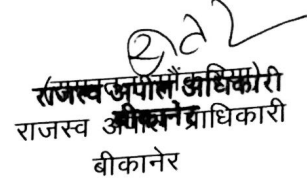 राजस्व अपील अधिकारी
बीकानेर
राजस्व अपील प्राधिकारी
बीकानेर